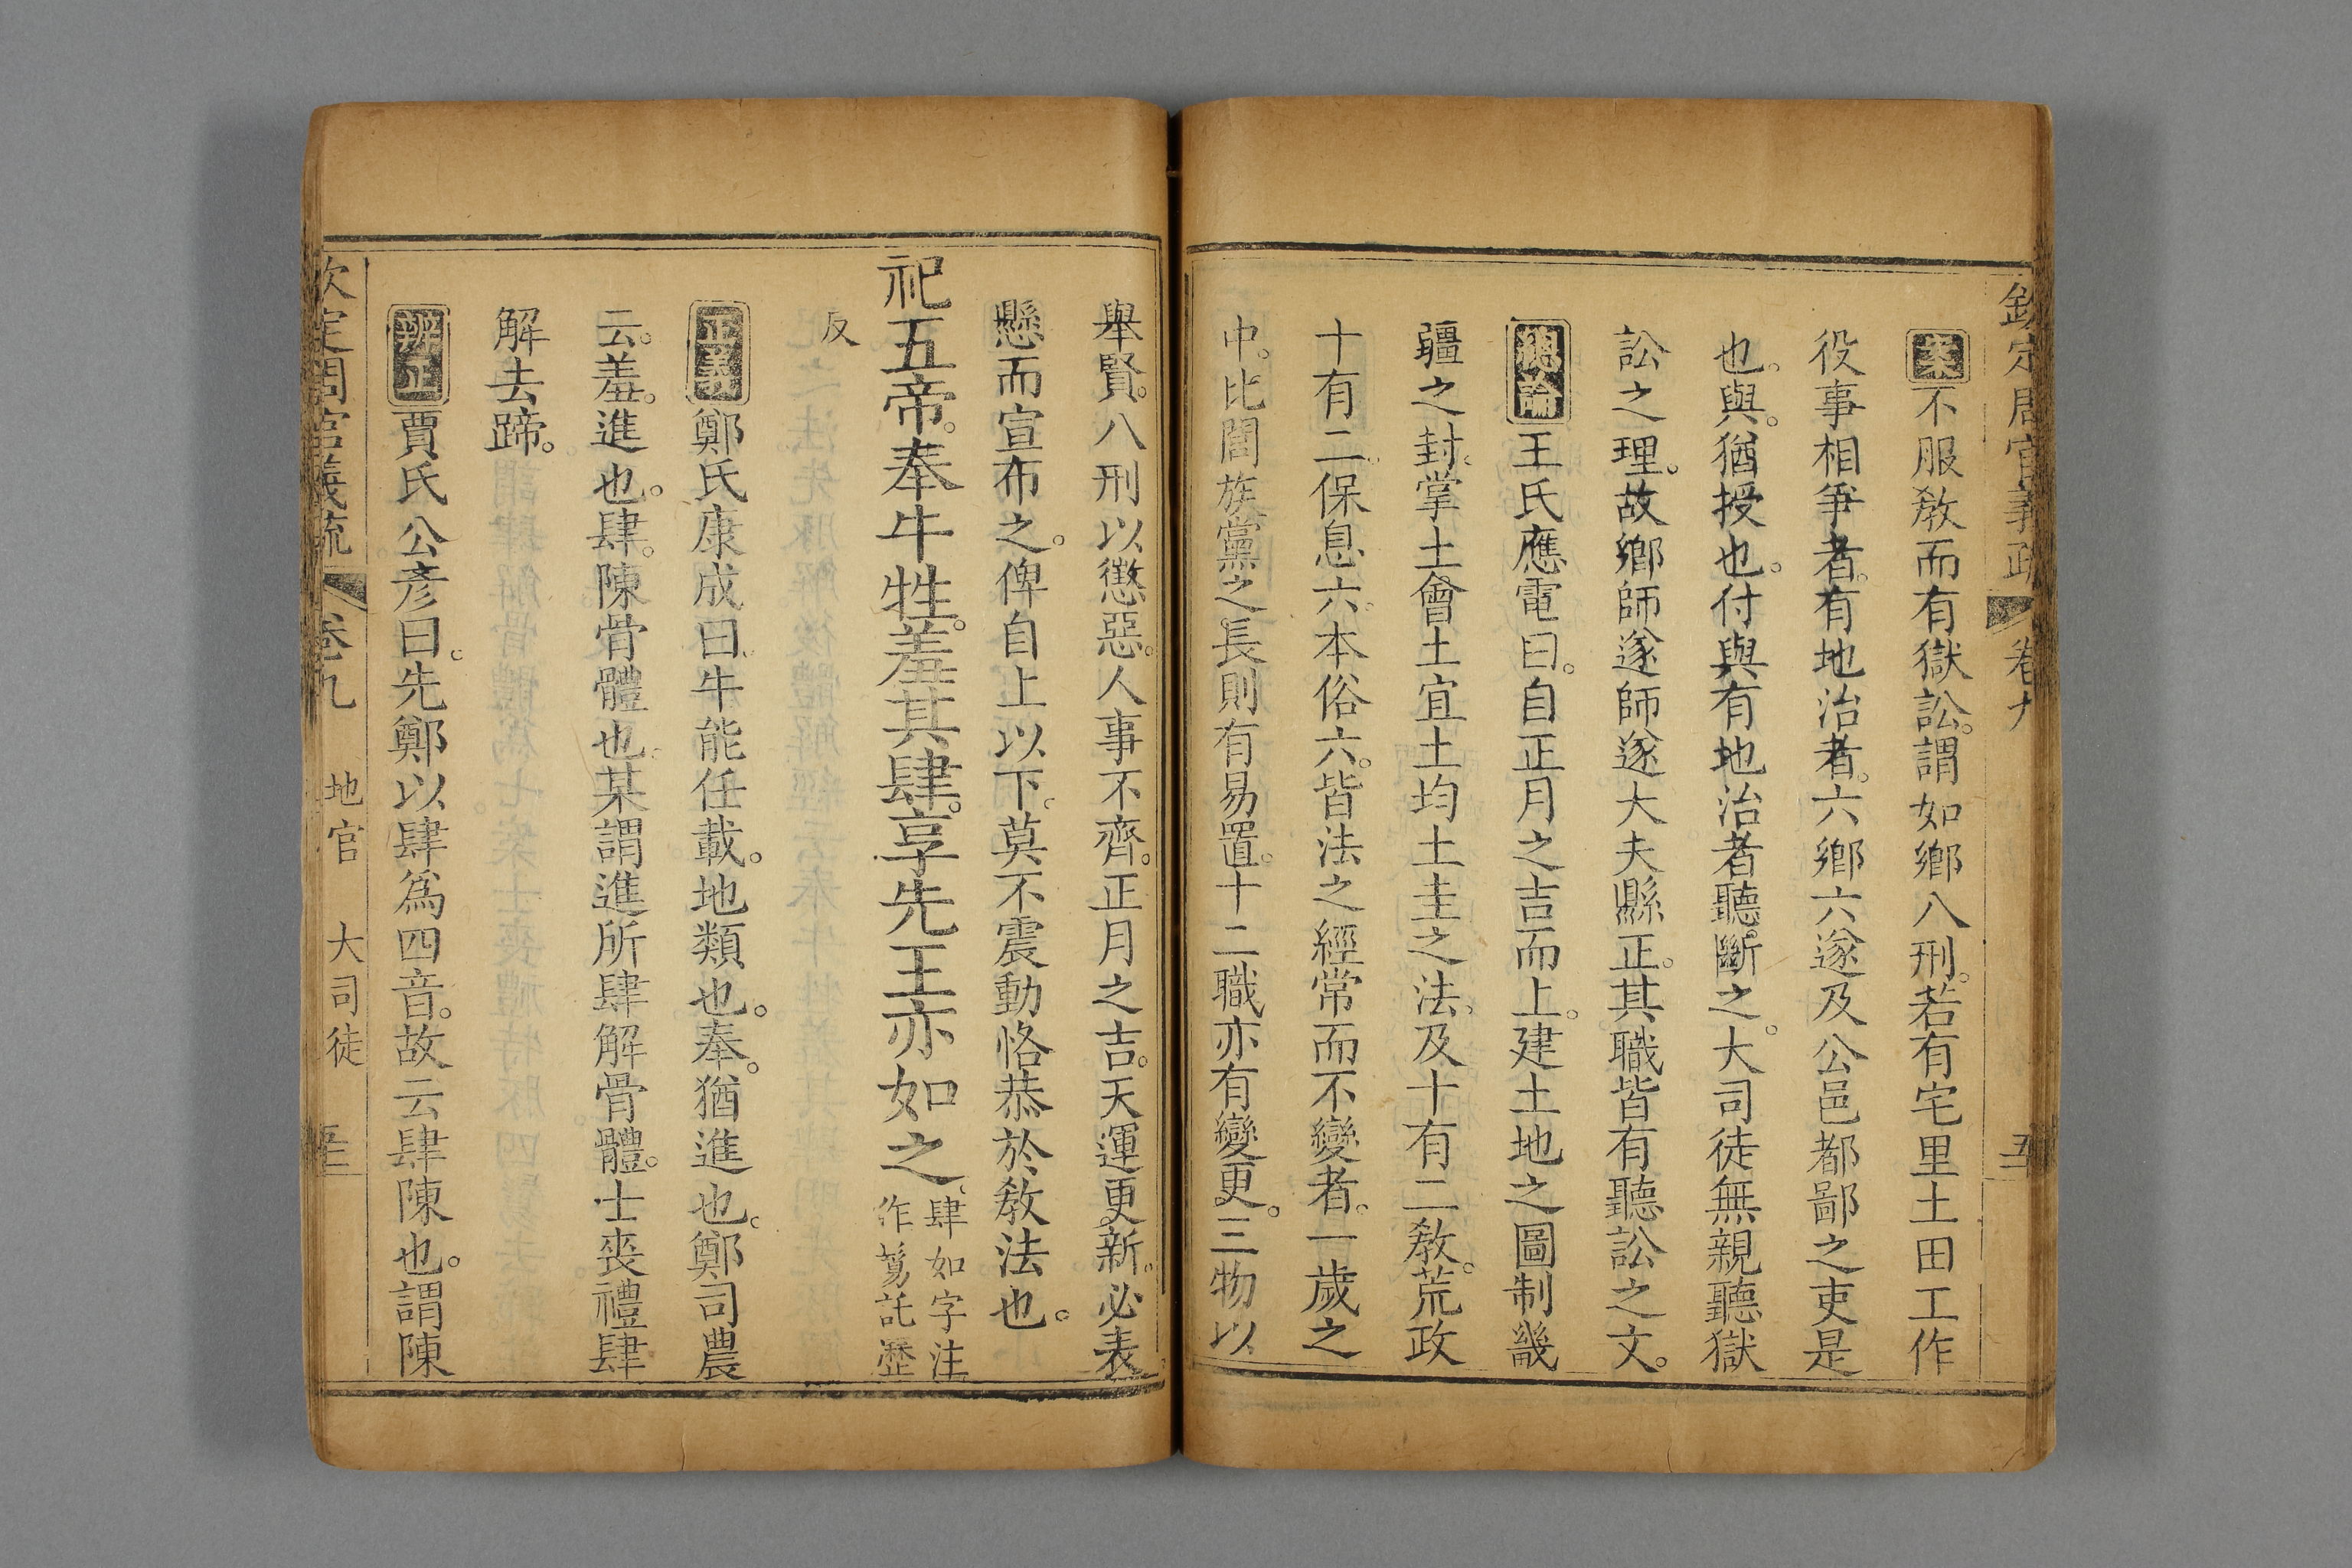 欽定周官義疏 卷九
案不服敎而有獄訟。謂如鄉八刑。若有宅里土田工作
役事相爭者。有地治者。六鄉六遂及公邑都鄙之吏是
也。與。猶授也。付與有地治者聽斷之。大司徒無親聽獄
訟之理。故鄉師遂師遂大夫縣正。其職皆有聽訟之文。
總論王氏應電曰。自正月之吉而上。建土地之圖制畿
疆之封。掌土會土宜土均土圭之法。及十有二敎。荒政
十有二。保息六。本俗六。皆法之經常而不變者。一歲之
中。比閭族黨之長則有易置。十二職亦有變更。三物以
舉賢。八刑以懲惡。人事不齊。正月之吉。天運更新。必表
懸而宣布之。俾自上以下。莫不震動恪恭於敎法也。
祀五帝。奉牛牲。羞其肆。享先王亦如之。肆如字注
作鬄託歷
反
正義鄭氏康成曰。牛能任載。地類也。奉。猶進也。鄭司農
云。羞。進也。肆。陳骨體也。某謂進所肆解骨體。士喪禮肆
解去蹄。
辨正賈氏公彥曰。先鄭以肆爲四音。故云肆陳也。謂陳
欽定周官義疏 卷九 地官 大司徒